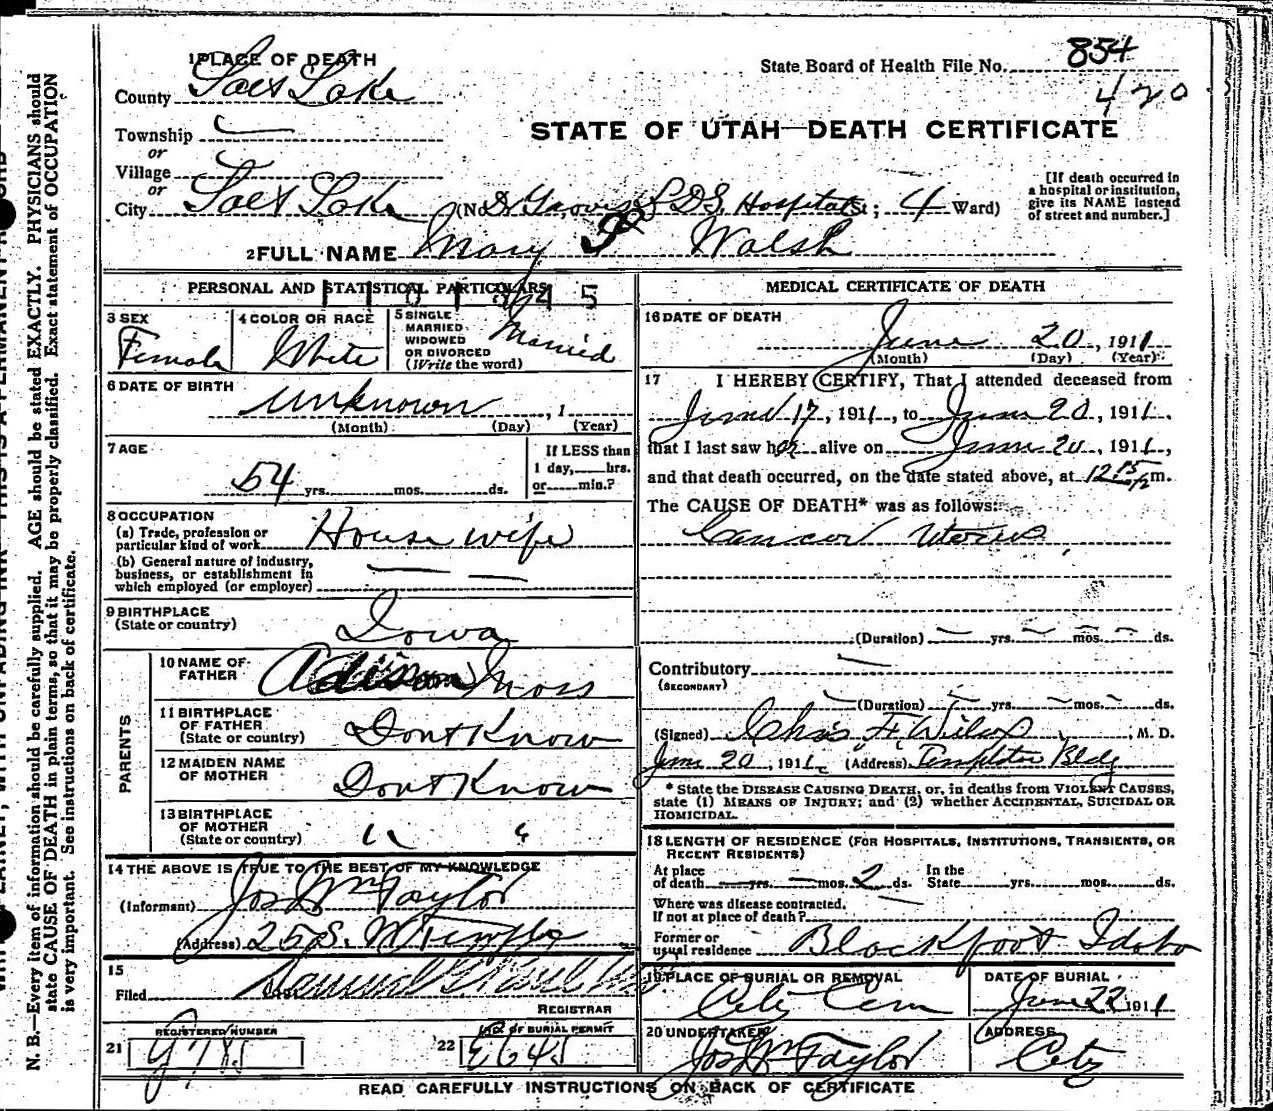 1 PLACE OF DEATH
State Board of Health File No. 854
420
County Salt Lake
STATE OF UTAH—DEATH CERTIFICATE
Township
or
Village
or
City Salt Lake (No. Dr Groves L.D.S. Hospital St; 4 Ward)
[If death occurred in a hospital or institution, give its NAME instead of street and number.]
2 FULL NAME Mary Walsh
PERSONAL AND STATISTICAL PARTICULARS
3 SEX Female
4 COLOR OR RACE White
5 SINGLE MARRIED WIDOWED OR DIVORCED (Write the word) Married
6 DATE OF BIRTH
Unknown , 1
(Month) (Day) (Year)
7 AGE
54 yrs. mos. ds.
If LESS than 1 day, hrs. or min.?
8 OCCUPATION
(a) Trade, profession or particular kind of work House wife
(b) General nature of industry, business, or establishment in which employed (or employer)
9 BIRTHPLACE
(State or country) Iowa
PARENTS
10 NAME OF FATHER Adison Moss
11 BIRTHPLACE OF FATHER (State or country) Dont Know
12 MAIDEN NAME OF MOTHER Dont Know
13 BIRTHPLACE OF MOTHER (State or country) " "
14 THE ABOVE IS TRUE TO THE BEST OF MY KNOWLEDGE
(Informant) Jos Wm Taylor
(Address) 25 S. W Temple
15
Filed
REGISTRAR
REGISTERED NUMBER
21
NO. OF BURIAL PERMIT
22 E645
MEDICAL CERTIFICATE OF DEATH
16 DATE OF DEATH
June 20, 1911
(Month) (Day) (Year)
17 I HEREBY CERTIFY, That I attended deceased from
June 17, 1911, to June 20, 1911,
that I last saw her alive on June 20, 1911,
and that death occurred, on the date stated above, at 12 15 p m.
The CAUSE OF DEATH* was as follows:
Cancer Uterus
(Duration) yrs. mos. ds.
Contributory
(SECONDARY)
(Duration) yrs. mos. ds.
(Signed) Chas F. Wilcox, M. D.
June 20, 1911 (Address) Templeton Bldg
* State the DISEASE CAUSING DEATH, or, in deaths from VIOLENT CAUSES, state (1) MEANS OF INJURY; and (2) whether ACCIDENTAL, SUICIDAL OR HOMICIDAL.
18 LENGTH OF RESIDENCE (FOR HOSPITALS, INSTITUTIONS, TRANSIENTS, OR RECENT RESIDENTS)
At place of death yrs. mos. 2 ds. In the State yrs. mos. ds.
Where was disease contracted, If not at place of death?
Former or usual residence Blackfoot Idaho
19 PLACE OF BURIAL OR REMOVAL City Cem
DATE OF BURIAL June 22 1911
20 UNDERTAKER Jos Wm Taylor
ADDRESS City
READ CAREFULLY INSTRUCTIONS ON BACK OF CERTIFICATE
N. B.—Every item of information should be carefully supplied. AGE should be stated EXACTLY. PHYSICIANS should
state CAUSE OF DEATH in plain terms, so that it may be properly classified. Exact statement of OCCUPATION
is very important. See instructions on back of certificate.